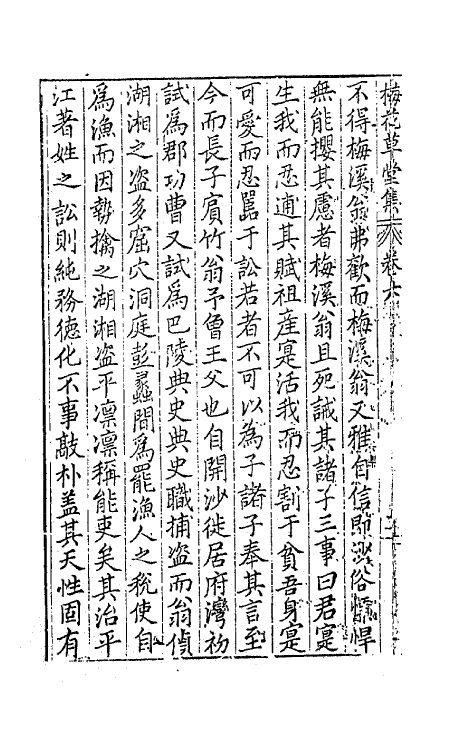 梅花草堂集 卷六
不得梅溪翁弗歡而梅溪翁又雅自信即沙俗慓悍
無能攖其慮者梅溪翁且死誡其諸子三事曰君寔
生我而忍逋其賦祖産寔活我而忍割于貧吾身寔
可愛而忍嚚于訟若者不可以為子諸子奉其言至
今而長子賔竹翁予曾王父也自開沙徙居府灣初
試爲郡功曹又試爲巴陵典史典史職捕盗而翁偵
湖湘之盗多窟穴洞庭彭蠡間爲罷漁人之稅使自
爲漁而因勢擒之湖湘盗平凛凛稱能吏矣其治平
江著姓之訟則純務德化不事敲朴盖其天性固有